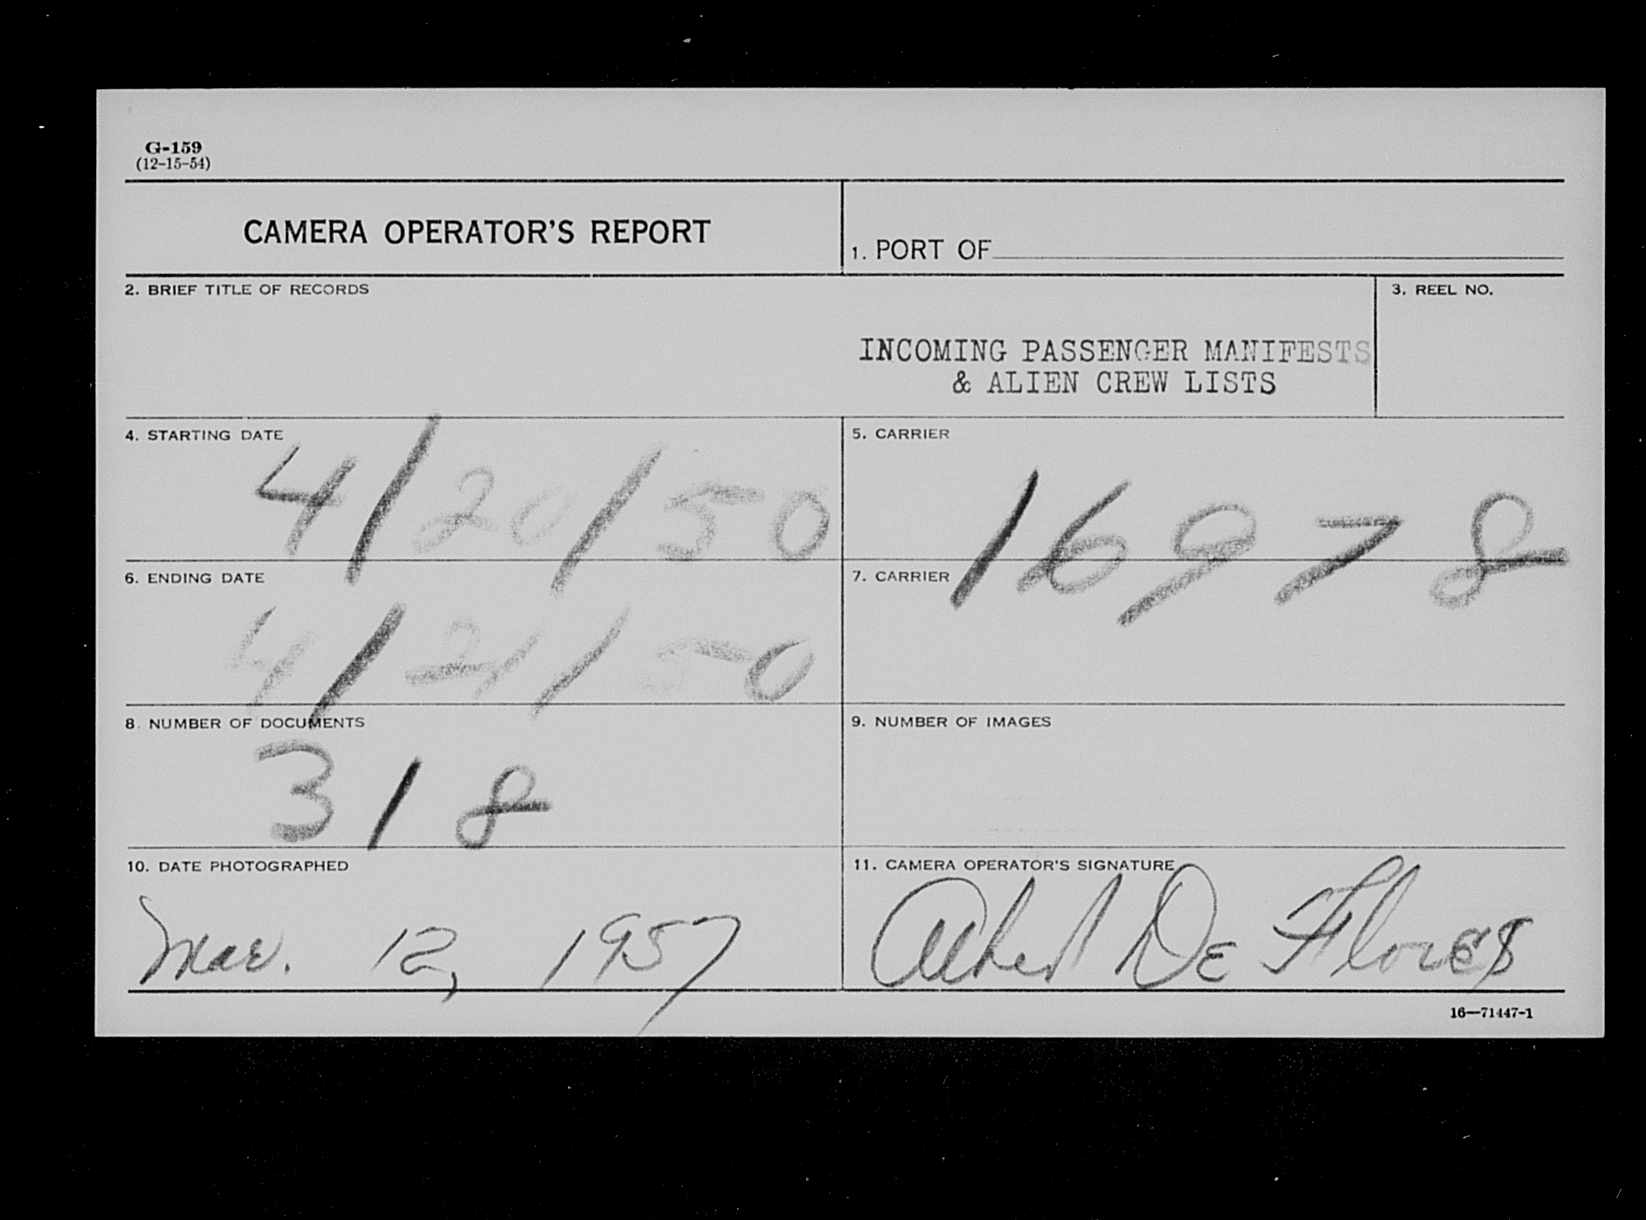 G-159
(12-15-54)
CAMERA OPERATOR'S REPORT
1. PORT OF
2. BRIEF TITLE OF RECORDS
3. REEL NO.
INCOMING PASSENGER MANIFESTS
& ALIEN CREW LISTS
4. STARTING DATE
4/20/50
5. CARRIER
16978
6. ENDING DATE
4/21/50
7. CARRIER
8. NUMBER OF DOCUMENTS
318
9. NUMBER OF IMAGES
10. DATE PHOTOGRAPHED
Mar. 12, 1957
11. CAMERA OPERATOR'S SIGNATURE
Albert De Flores
16—71447-1